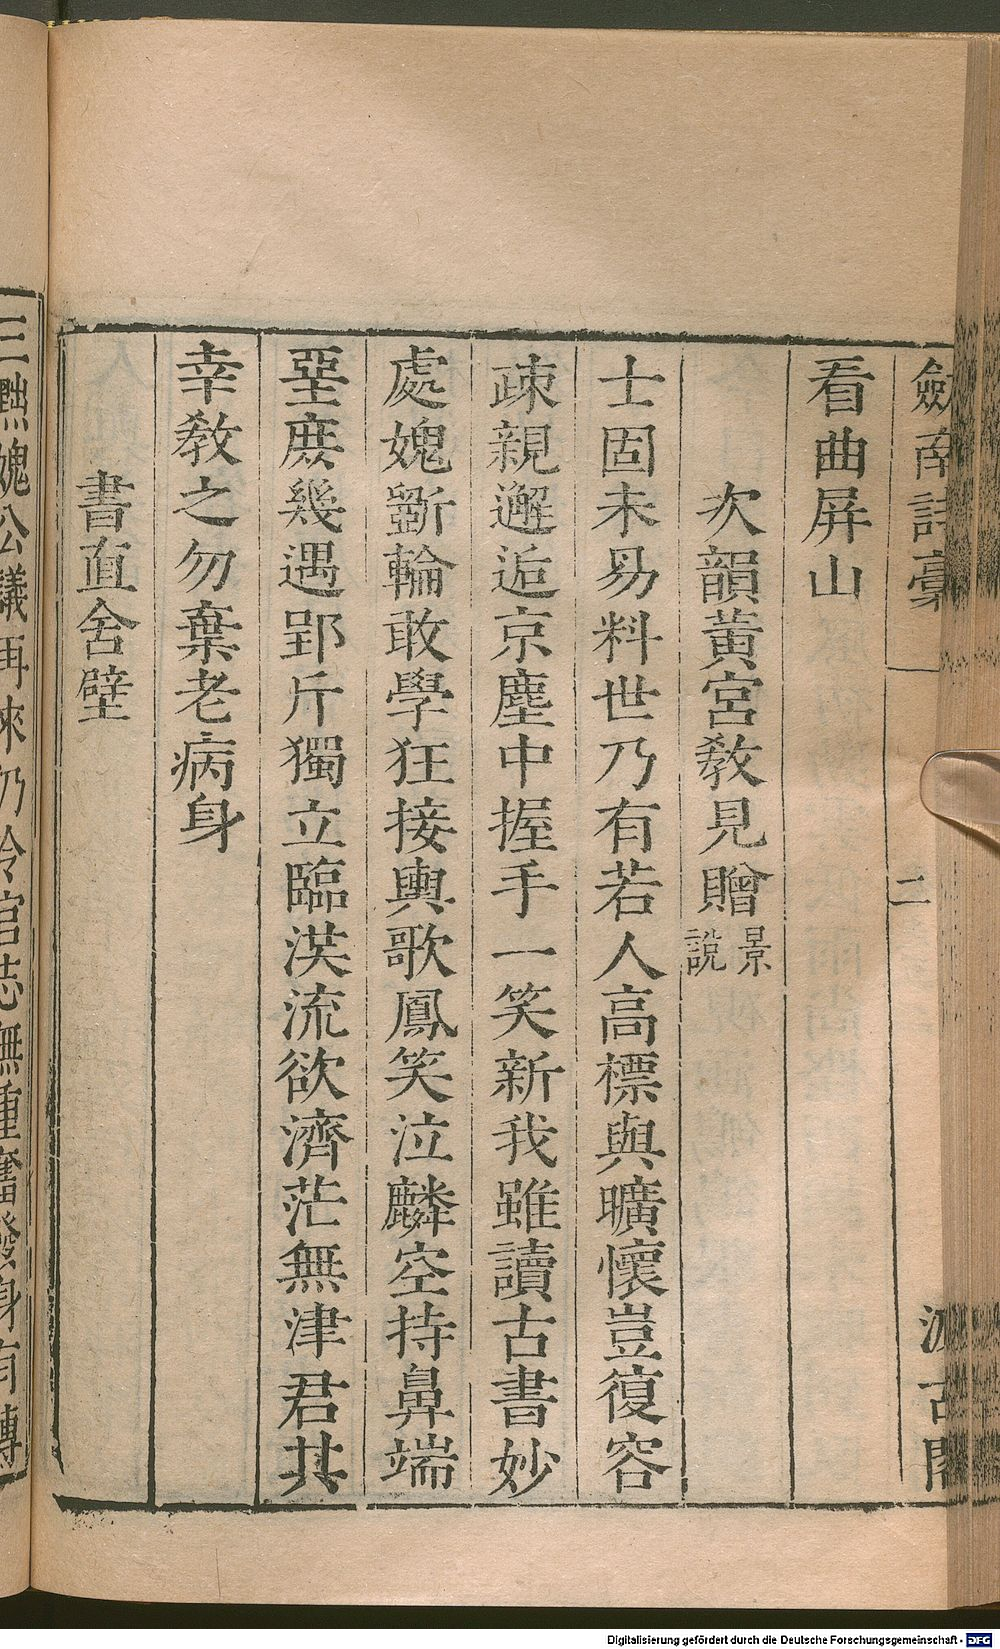 劔南詩藁
二
汲古閣
看曲屏山
次韻黃宮教見贈景說
士固未易料世乃有若人高標與曠懷豈復容
疎親邂逅京塵中握手一笑新我雖讀古書妙
處媿斵輪敢學狂接輿歌鳳笑泣麟空持鼻端
堊庶幾遇郢斤獨立臨漢流欲濟茫無津君其
幸教之勿棄老病身
書直舍壁
三黜媿公議再來乃冷官志無重奮發身有
Digitalisierung gefördert durch die Deutsche Forschungsgemeinschaft - DFG